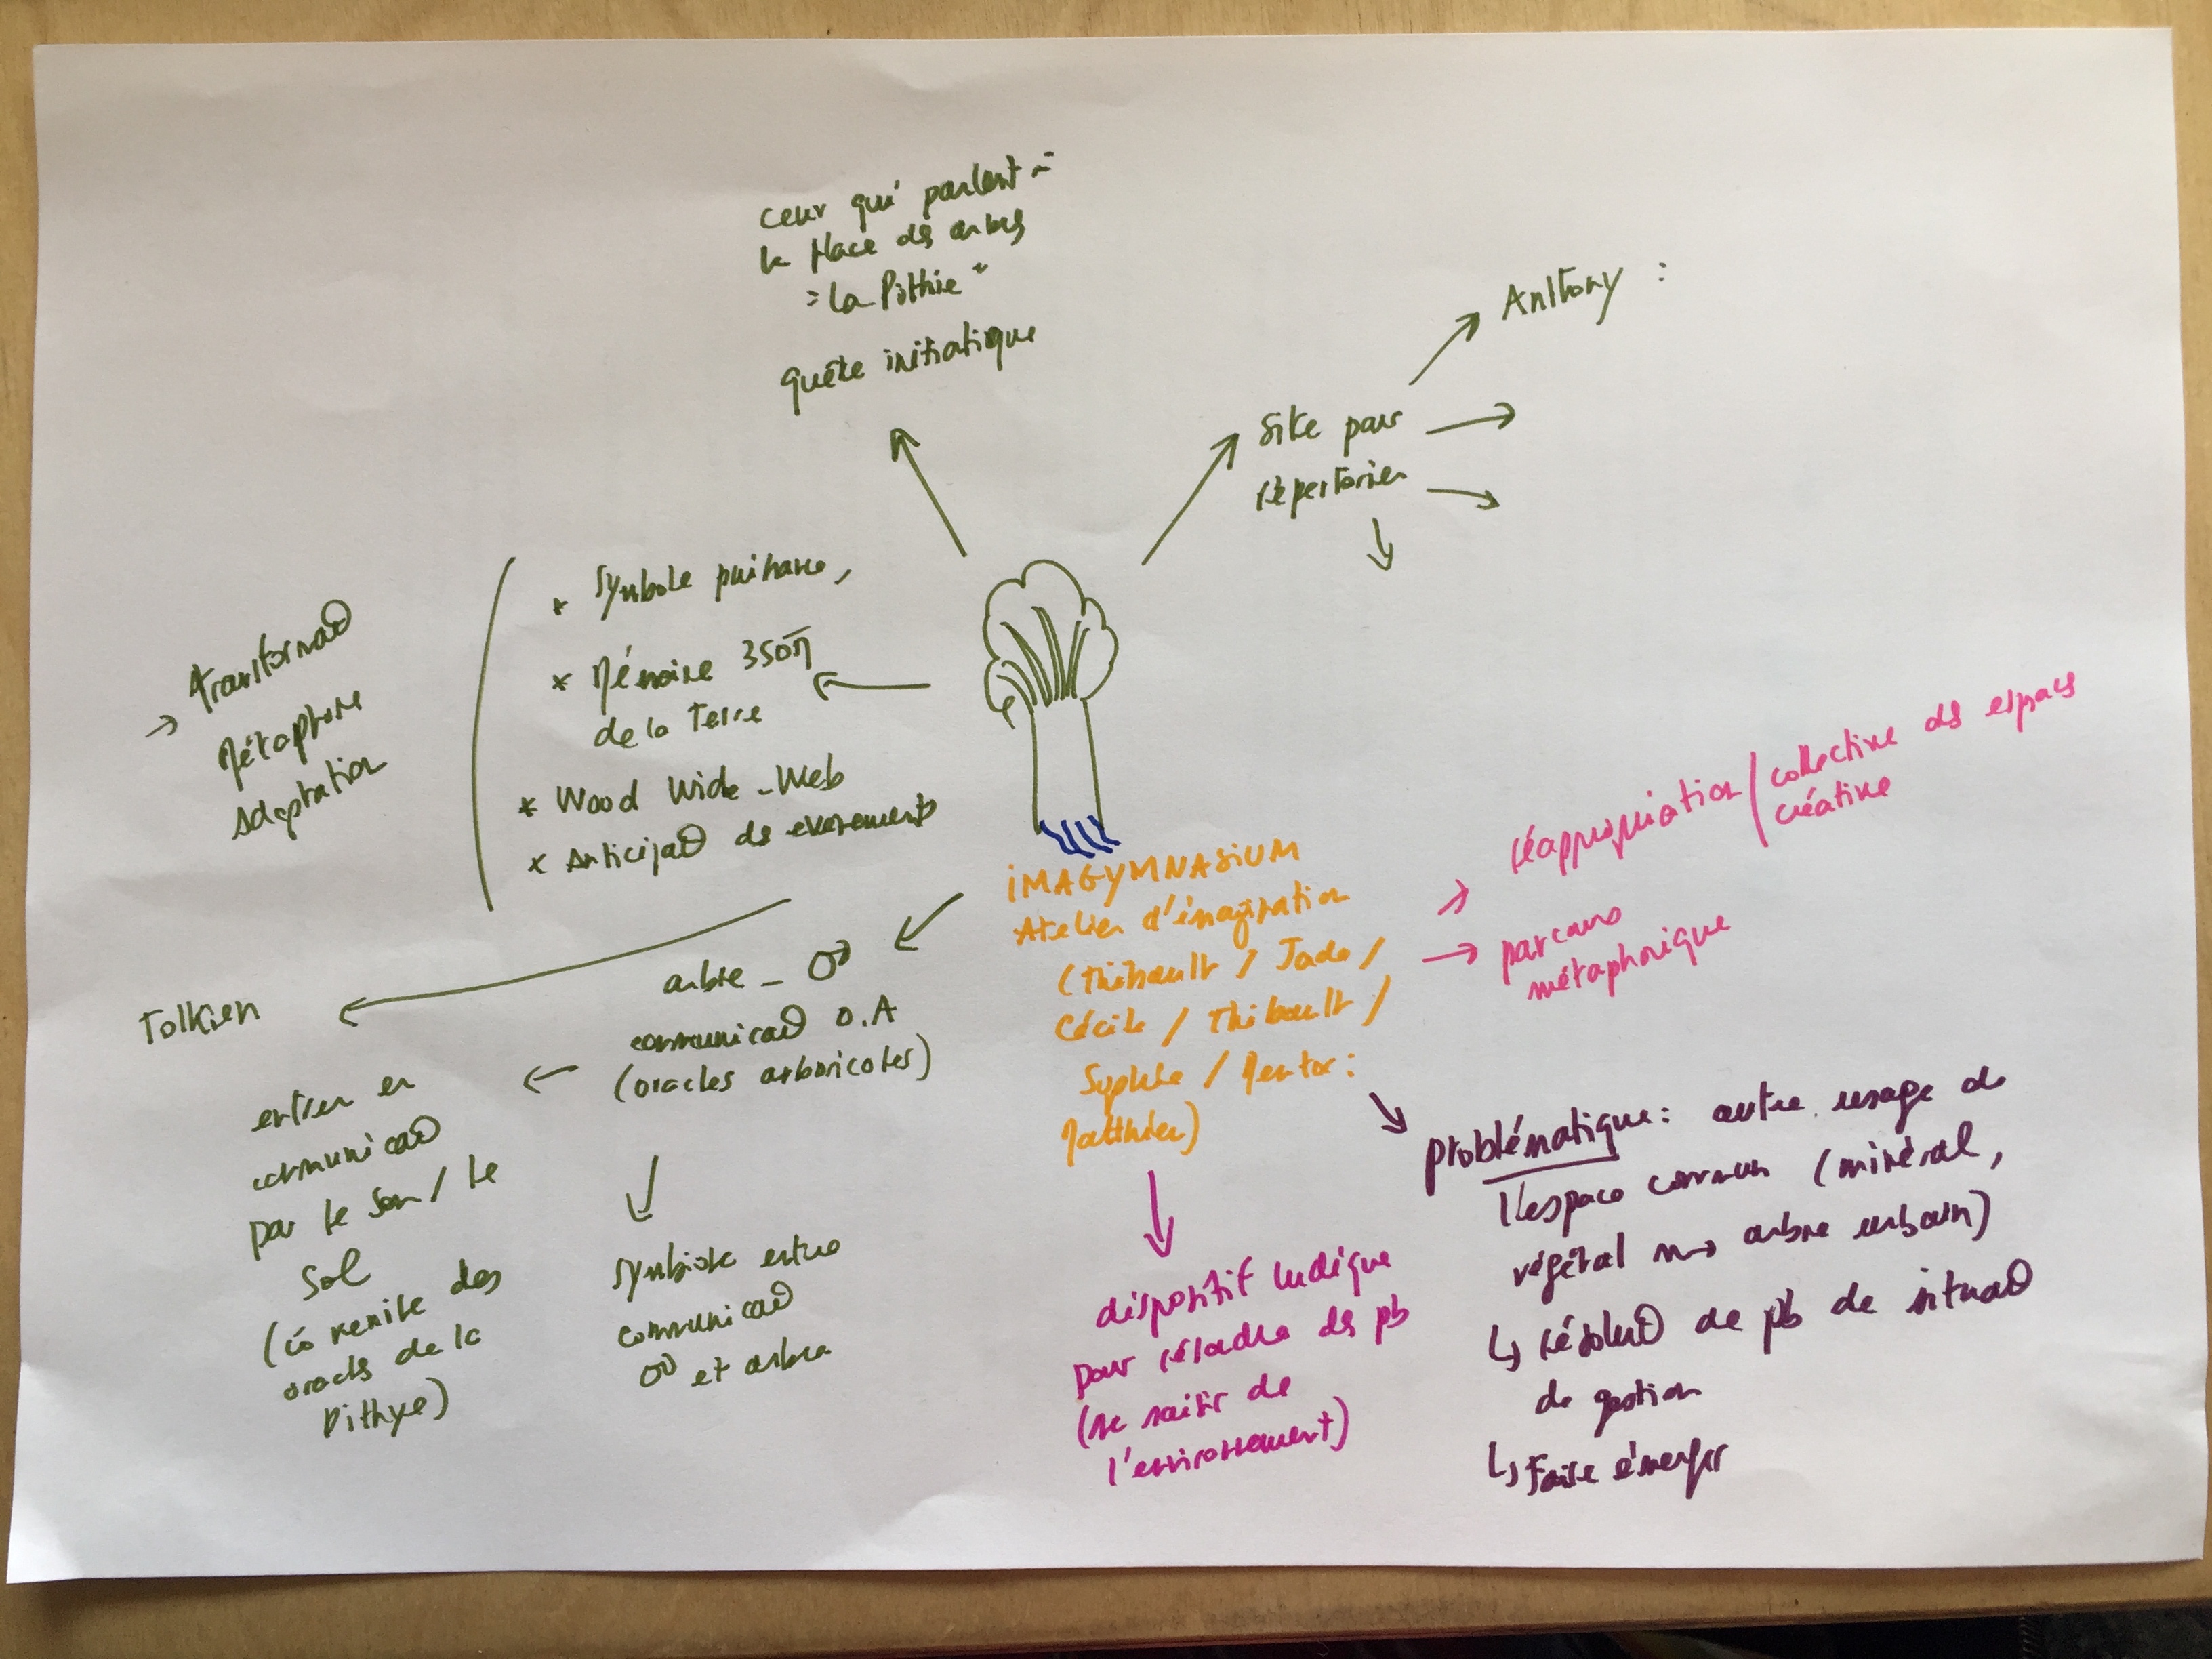 ceux qui parlent à
la place des arbres
= "La Pithie"
quête initiatique
Site pour
répertorier
Anthony :
* Symbole puissance,
* Mémoire 350
de la Terre
* Wood Wide-Web
* Anticipat° des evenements
→ transformat°
Métaphore
Adaptation
Tolkien
arbre -
communicat° O.A
(oracles arboricoles)
entrer en
communicat°
par le son / le
sol
(co venite des
oracles de la
Pithye)
symbiose entre
communicat°
et arbre
iMAGYMNASiUM
Atelier d'imagination
(Thibault / Jade /
Cécile / Thibault /
Sophie / Mentor :
Matthieu)
réappropriation / collective des espaces
créative
parcours
métaphorique
dispositif ludique
pour résoudre des pb
(se saisir de
l'environnement)
Problématique : autre usage de
l'espace commun (minéral,
végétal → arbre urbain)
↳ résolut° de pb de situat°
de gestion
↳ Faire émerger